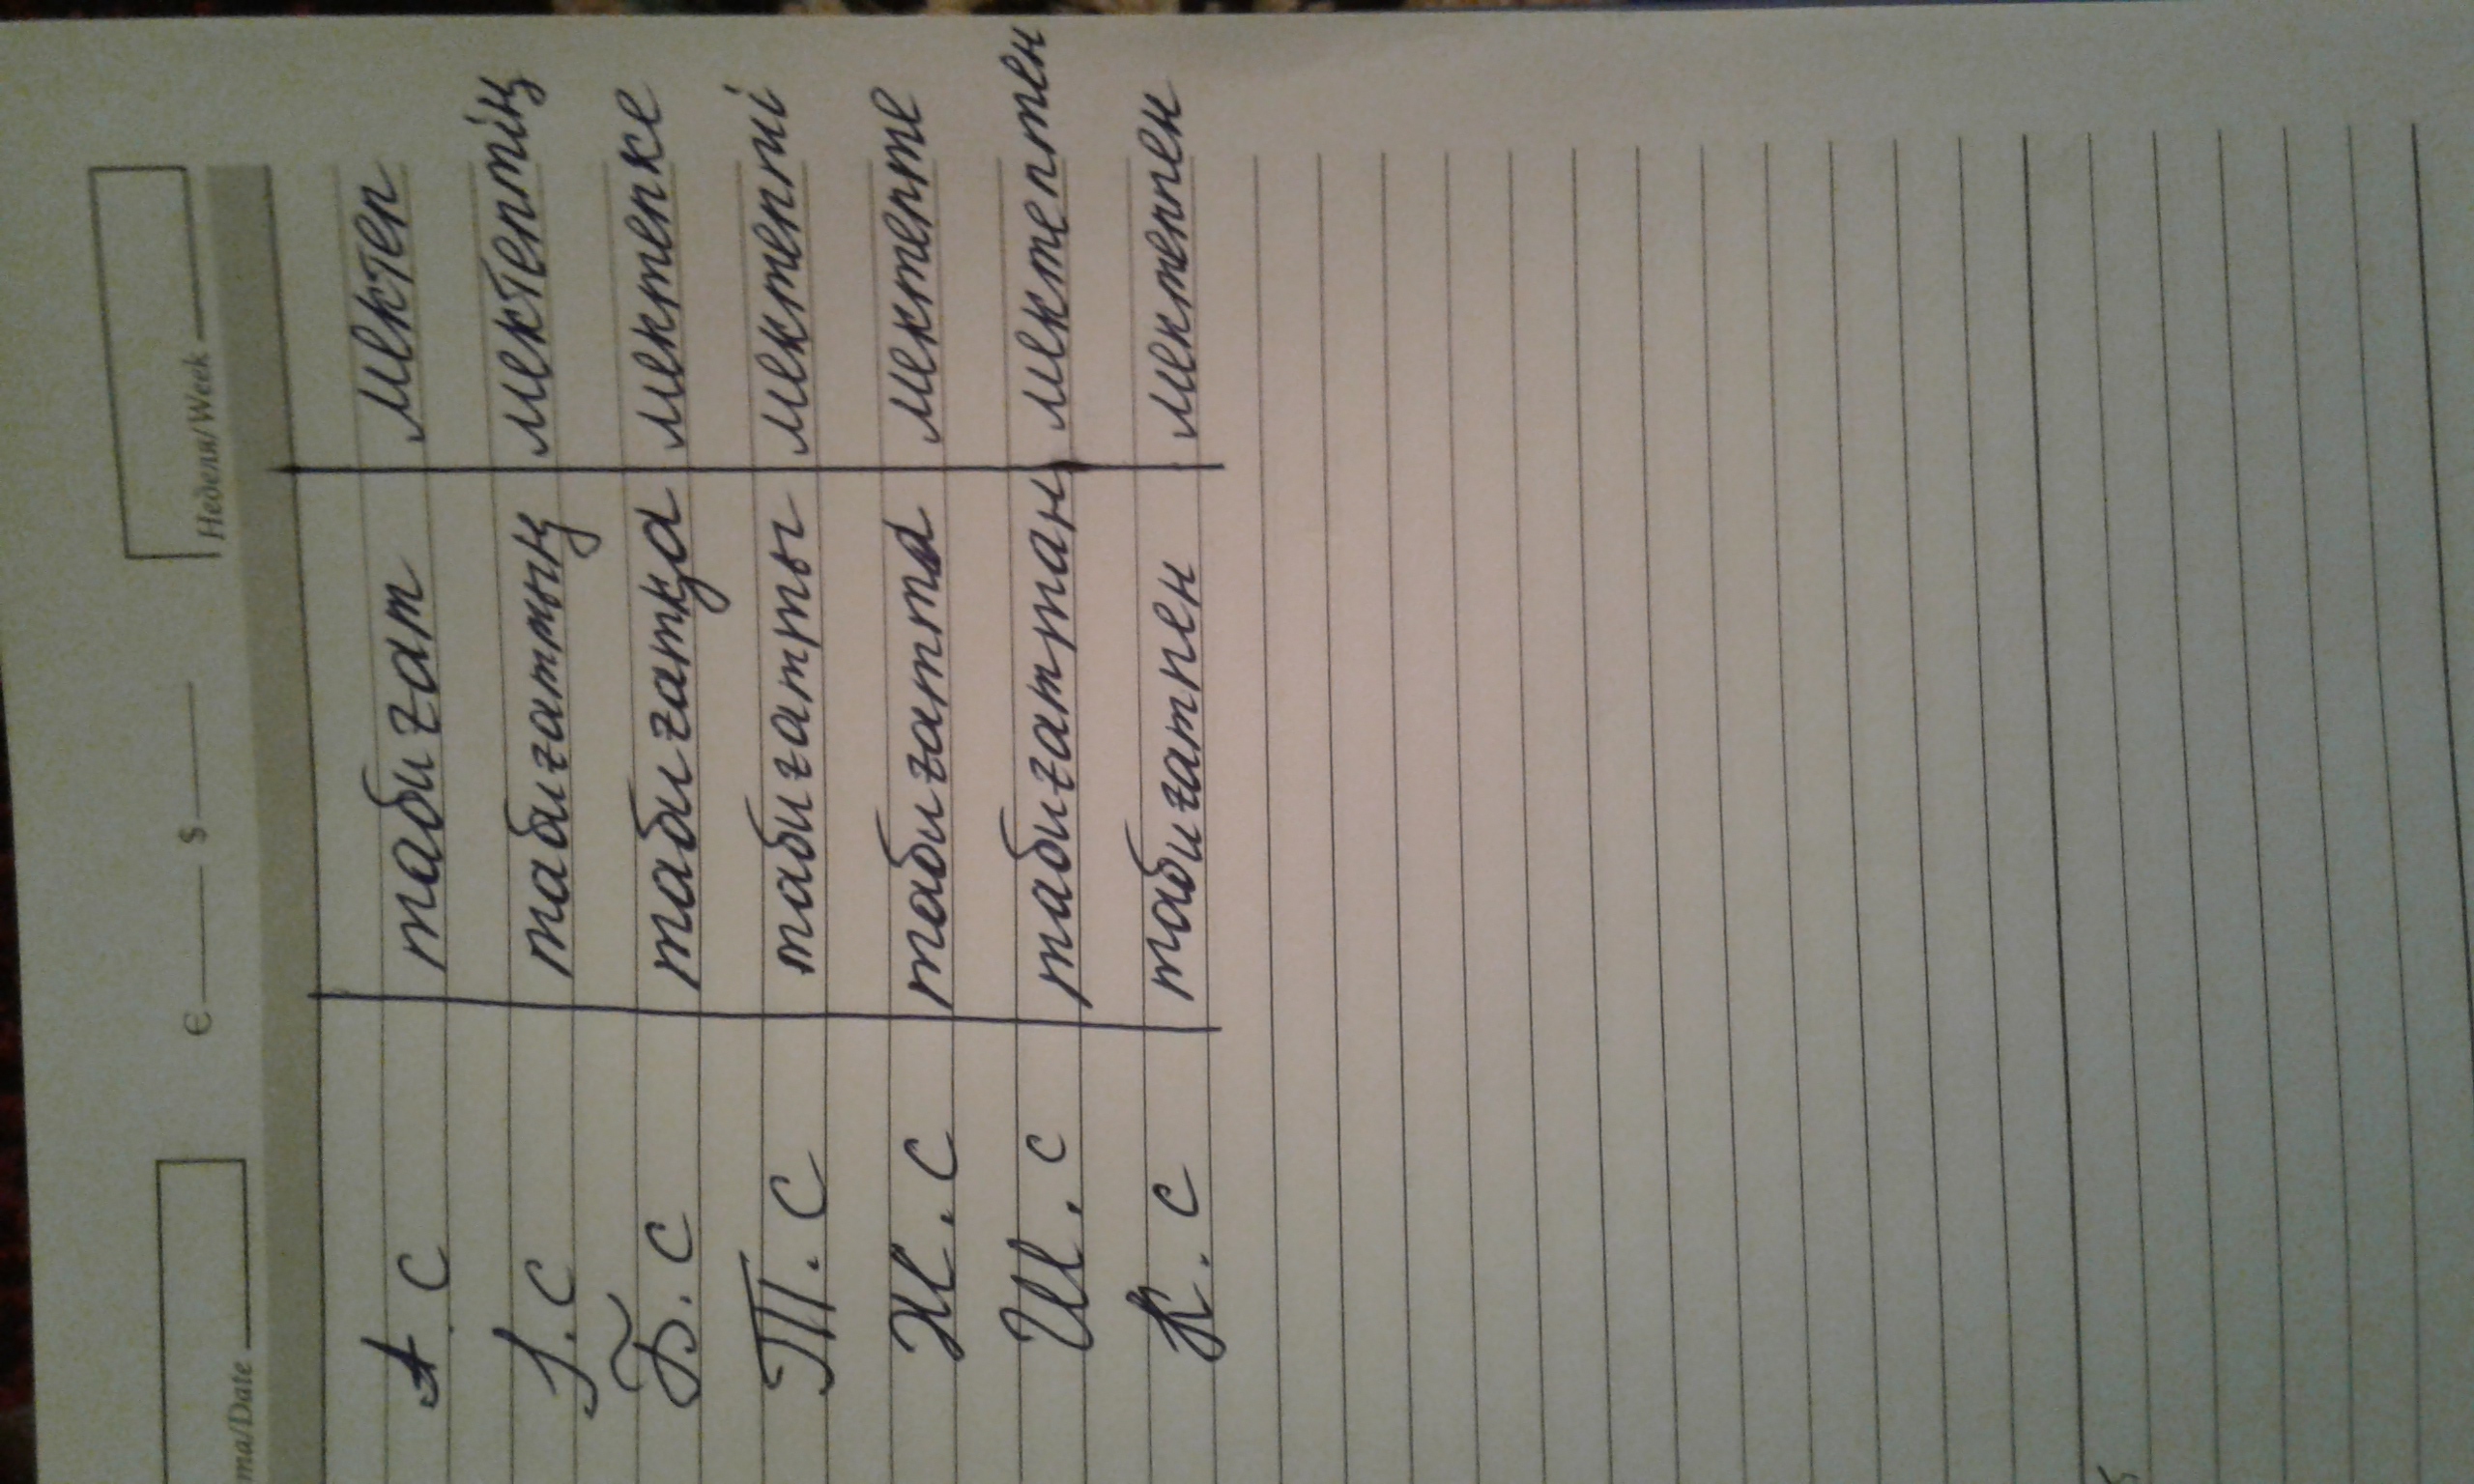 Неделя/Week
€ $
ma/Date
А.С табиғат мектеп
І.С табиғаттың мектептің
Б.С табиғатқа мектепке
Т.С табиғатты мектепті
Ж.С табиғатта мектепте
Ш.С табиғаттан мектептен
К.С табиғатпен мектеппен